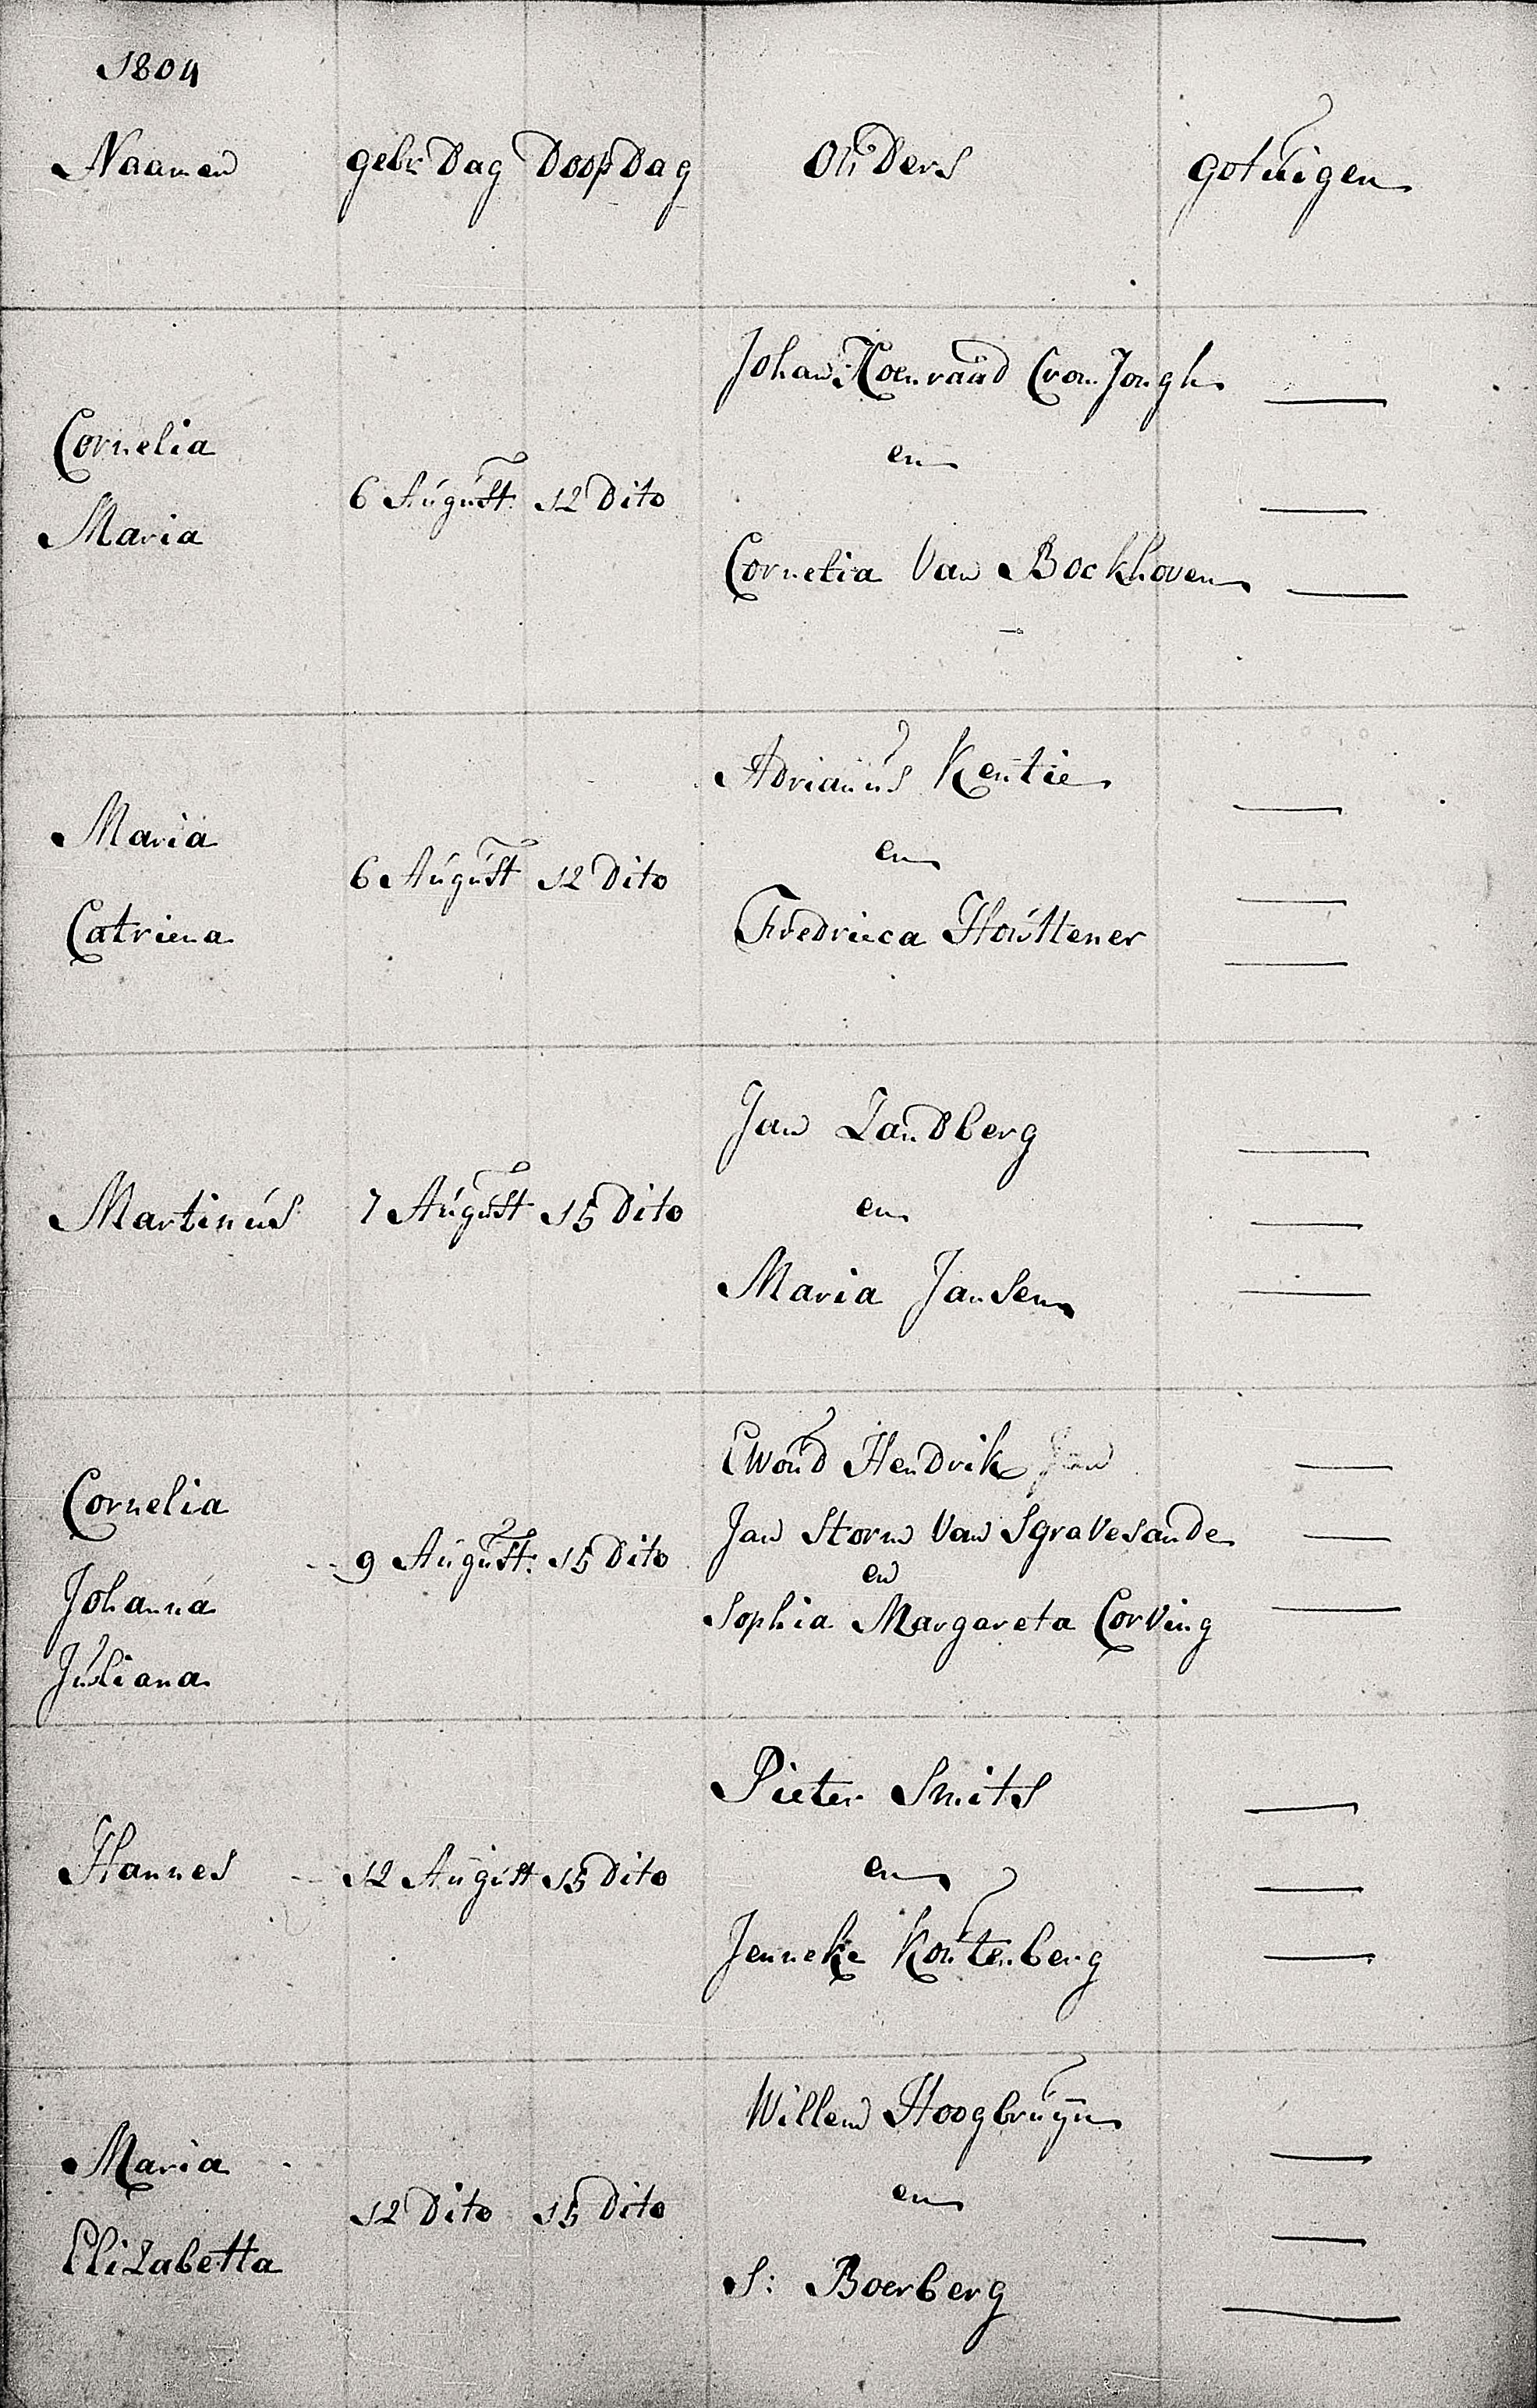 1804
Naamen gebr Dag Doop Dag Ouders getuigen
Johan Koenraad Cron Jongh
Cornelia
en
6 August 12 Dito
Maria
Cornelia Van Bockhoven
Adrianus Kentie
Maria
en
6 August 12 Dito
Catriena
Fredrieca Houttener
Jan Landberg
Martinus 7 August 15 Dito en
Maria Jansen
Ewoud Hendrik Jan
Cornelia
Jan Storm Van Sgravesande
9 August 15 Dito en
Johanna
Sophia Margareta Corving
Juliana
Pieter Smits
Hannes 12 August 15 Dito en
Jenneke Koutenberg
Willem Hoogbruyn
Maria
12 Dito 15 Dito en
Elizabetta
S: Boerberg